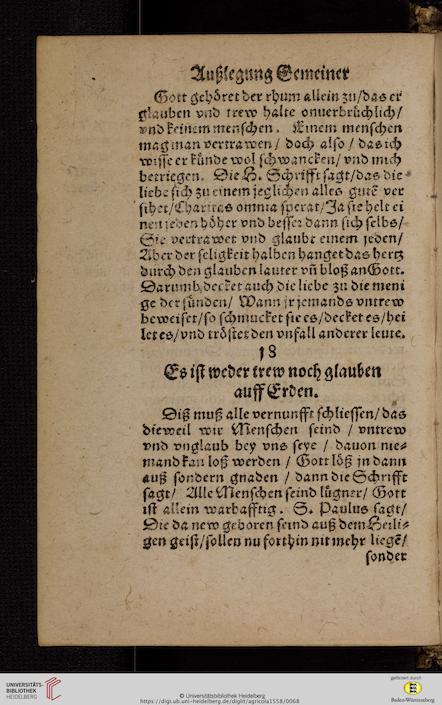 Außlegung Gemeiner
Gott gehöret der rhum allein zu/das er
glauben vnd trew halte onuerbrüchlich/
vnd keinem menschen. Einem menschen
mag man vertrawen/ doch also/ das ich
wisse er künde wol schwancken/ vnd mich
betriegen. Die H. Schrifft sagt/das die
liebe sich zu einem jeglichen alles gutē ver
sihet/Charitas omnia sperat/Ja sie helt ei
nen jeden höher vnd besser dann sich selbs/
Sie vertrawet vnd glaubt einem jeden/
Aber der seligkeit halben hanget das hertz
durch den glauben lauter vñ bloß an Gott.
Darumb decket auch die liebe zu die meni
ge der sünden/ Wann jr jemands vntrew
beweiset/so schmucket sie es/decket es/hei
let es/vnd tröstet den vnfall anderer leute.
18
Es ist weder trew noch glauben
auff Erden.
Diß muß alle vernunfft schliessen/das
dieweil wir Menschen seind / vntrew
vnd vnglaub bey vns seye / dauon nie⸗
mand kan loß werden / Gott löß jn dann
auß sondern gnaden / dann die Schrifft
sagt/ Alle Menschen seind lügner/ Gott
ist allein warhafftig. S. Paulus sagt/
Die da new geboren seind auß dem Heili⸗
gen geist/sollen nu forthin nit mehr liegē/
sonder
UNIVERSITÄTS-
BIBLIOTHEK
HEIDELBERG
© Universitätsbibliothek Heidelberg
https://digi.ub.uni-heidelberg.de/diglit/agricola1558/0068
gefördert durch
Baden-Württemberg